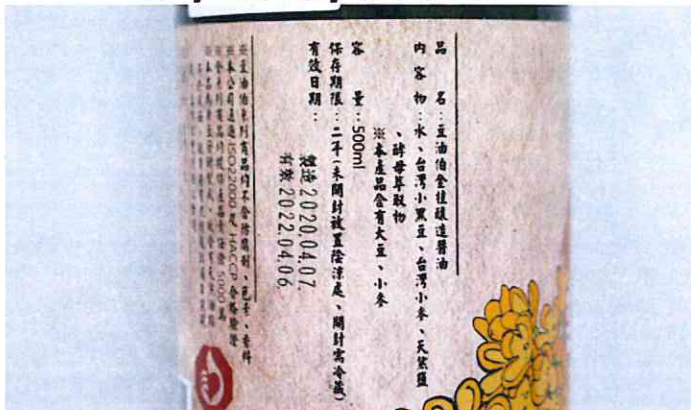 品名：豆油伯金桂釀造醬油
內容物：水、台灣小黑豆、台灣小麥、天然鹽
、酵母萃取物
※本產品含有大豆、小麥
容量：500ml
保存期限：二年(未開封放置陰涼處、開封需冷藏)
有效日期：
製造 2020.04.07.
有效 2022.04.06.
※豆油伯系列商品均不含防腐劑、色素、香料
※本公司通過ISO22000及HACCP合格驗證
※全系列商品均投保產品責任險5000萬